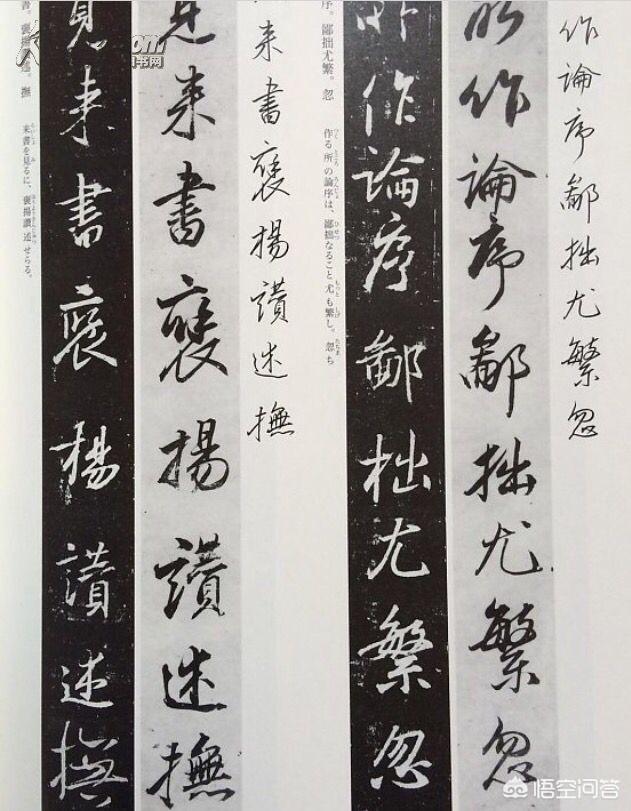 作論序鄙拙尤繁忽
所作論序鄙拙尤繁忽
所作論序鄙拙尤繁忽
序。鄙拙尤繁。忽
作る所の論序は、鄙拙なること尤も繁し。忽ち
来書褒揚讃述撫
見来書褒揚讃述撫
見来書褒揚讃述撫
書。褒揚讃述。撫
来書を見るに、褒揚讃述せらる。
.com
书网
悟空问答